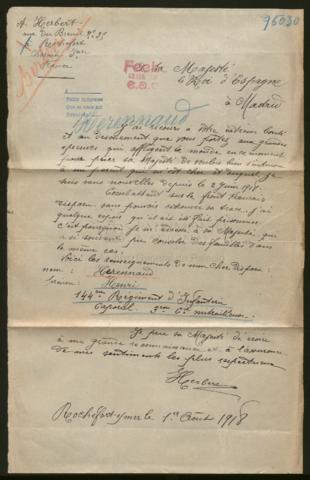 A. Herbert
rue du Breuil N° 35
à Rochefort
96030
Sa Majesté
le Roi d'Espagne
à Madrid
Herennaud
J'ai recours à Votre
et au dévouement que vous portez aux grandes
épreuves qui affligent le monde en ce moment
pour prier sa Majesté de vouloir bien
à un parent qui m'est cher et duquel je
suis sans nouvelles depuis le 2 juin 1918.
Combattant sur le front français
disparu sans pouvoir retrouver sa trace, j'ai
quelque espoir qu'il ait été fait prisonnier,
c'est pourquoi je m'adresse à sa Majesté, qui
a si souvent pu consoler des familles dans
le même cas.
Voici les renseignements de mon cher disparu:
nom: Herennaud
Henri
144me Régiment d'Infanterie
Caporal Cie mitrailleuses.
Je prie sa Majesté de croire
à ma grande reconnaissance et à l'assurance
de mes sentiments les plus respectueux
Herbert
Rochefort s/mer le 1er Août 1918